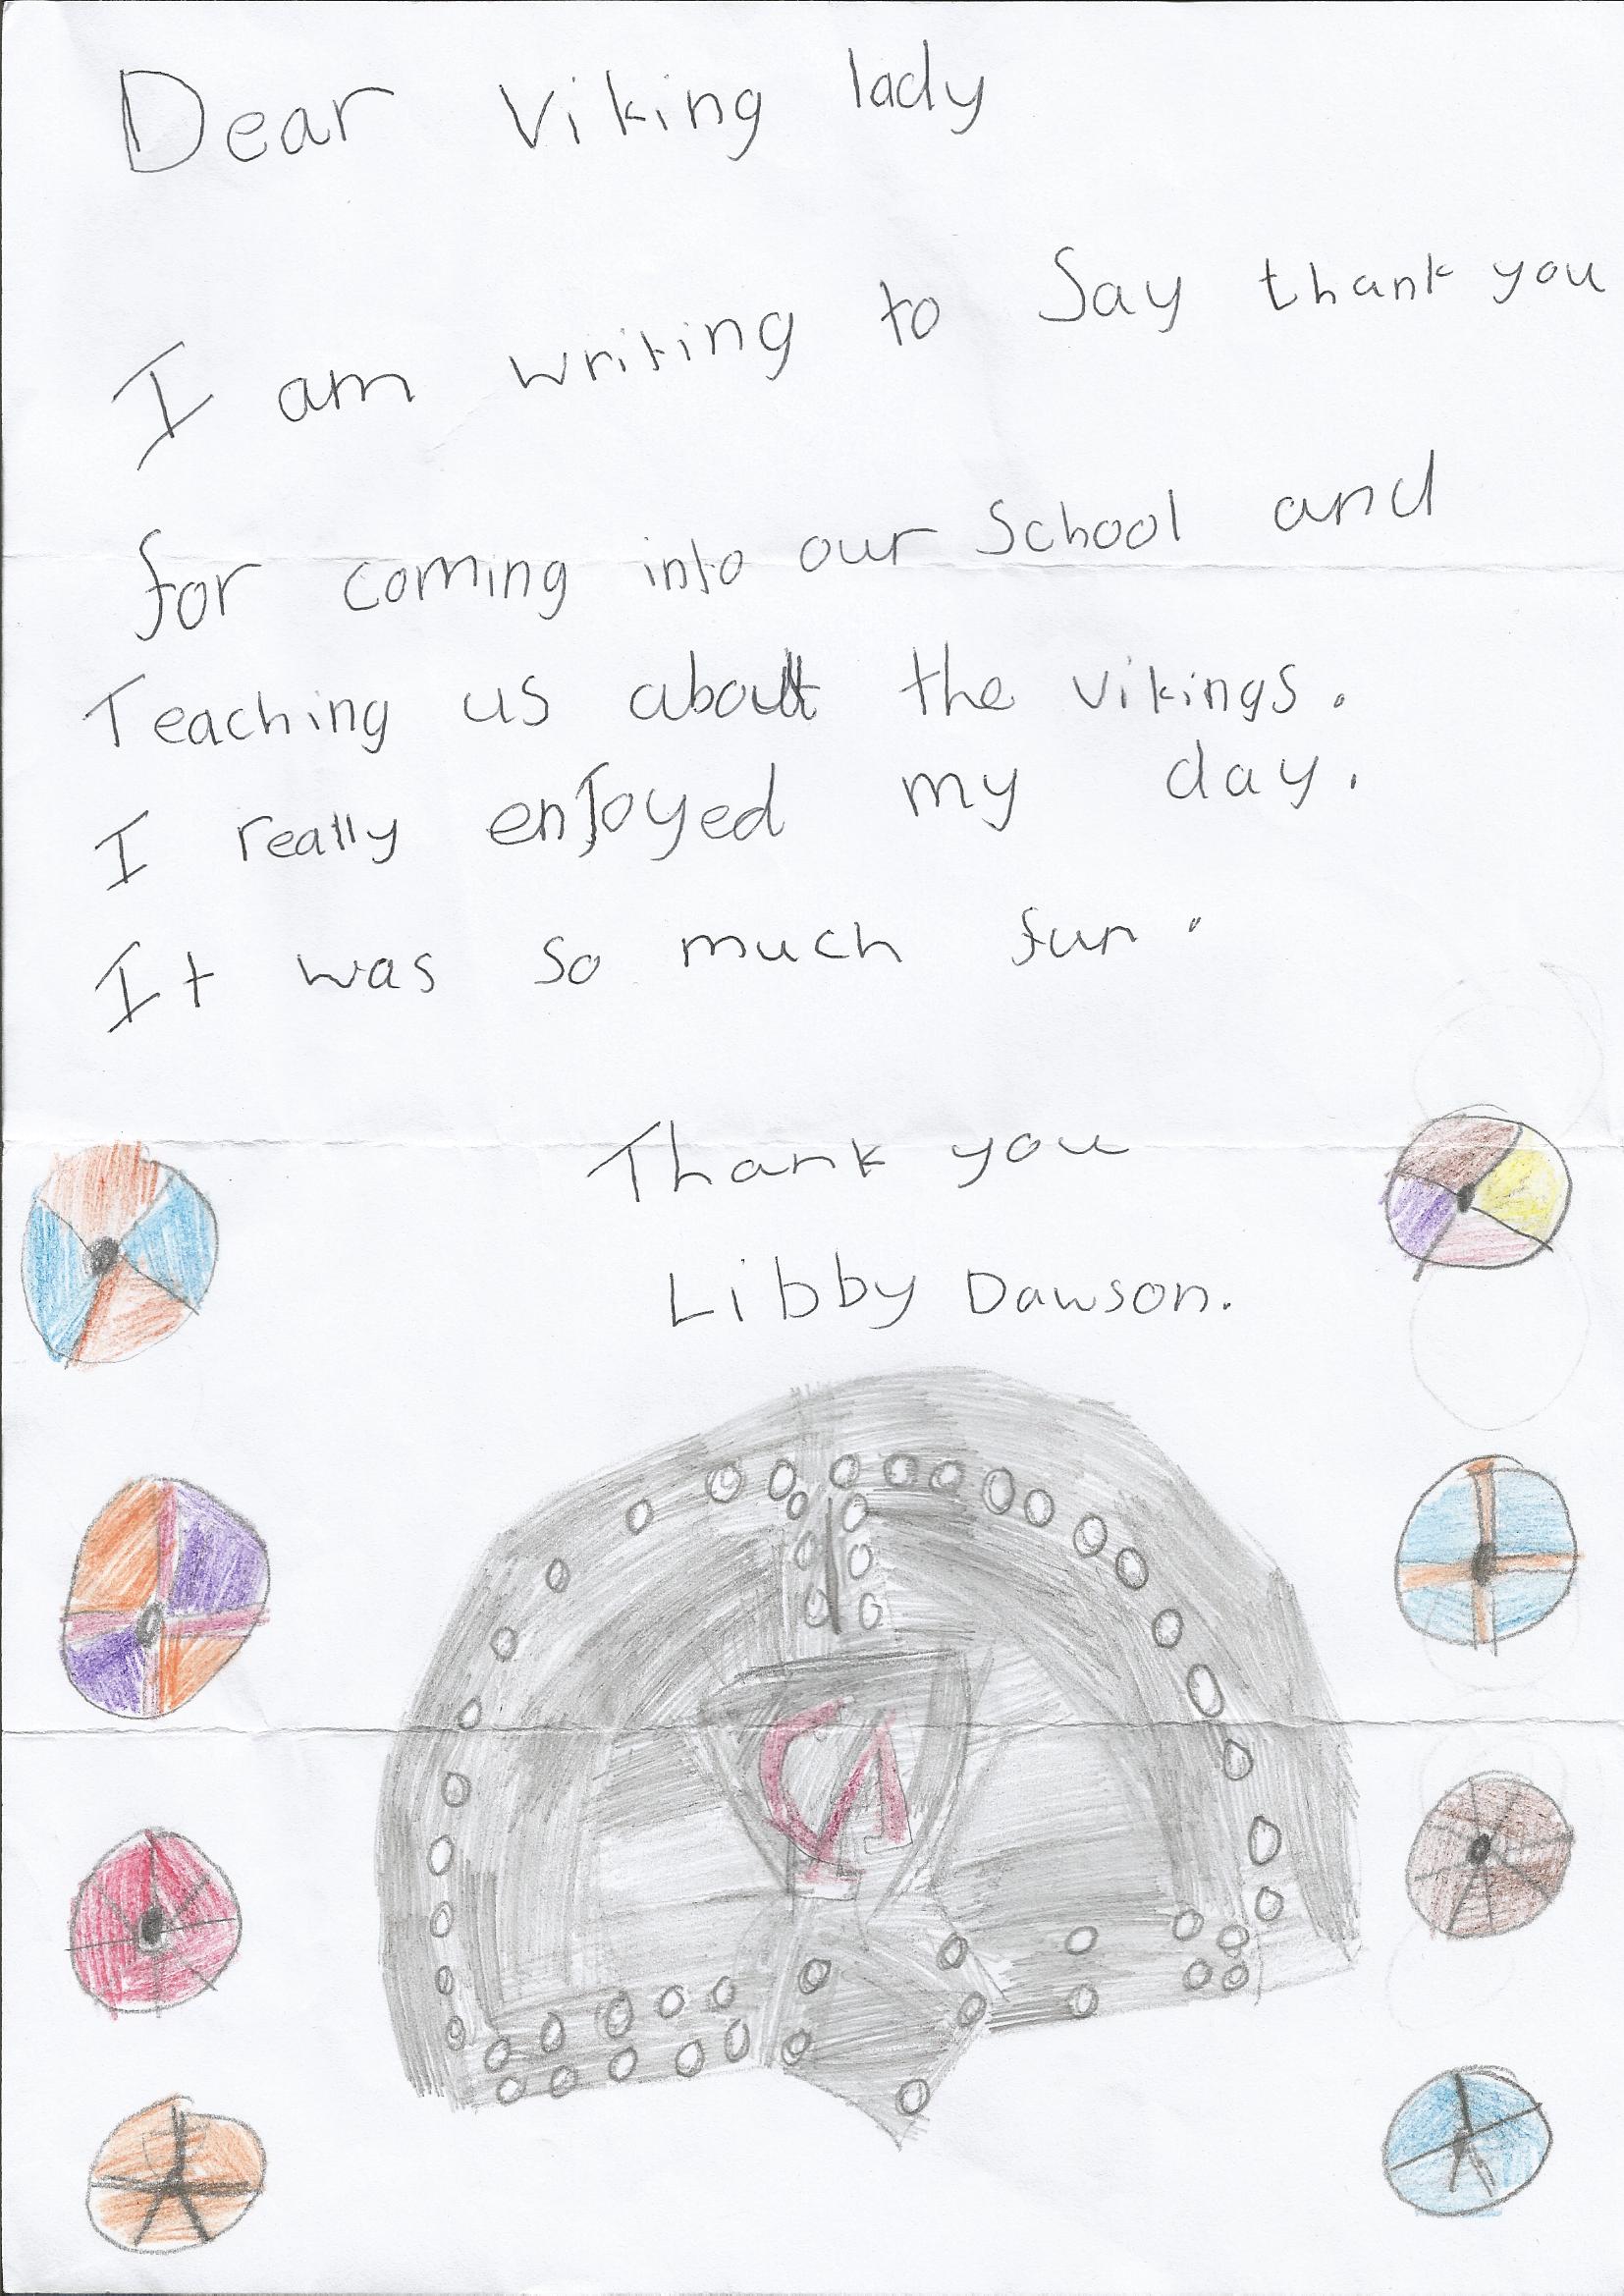 Dear Viking lady
I am writing to Say thank you
for coming into our School and
Teaching us about the vikings.
I really enJoyed my day.
It was so much fun.
Thank you
Libby Dawson.